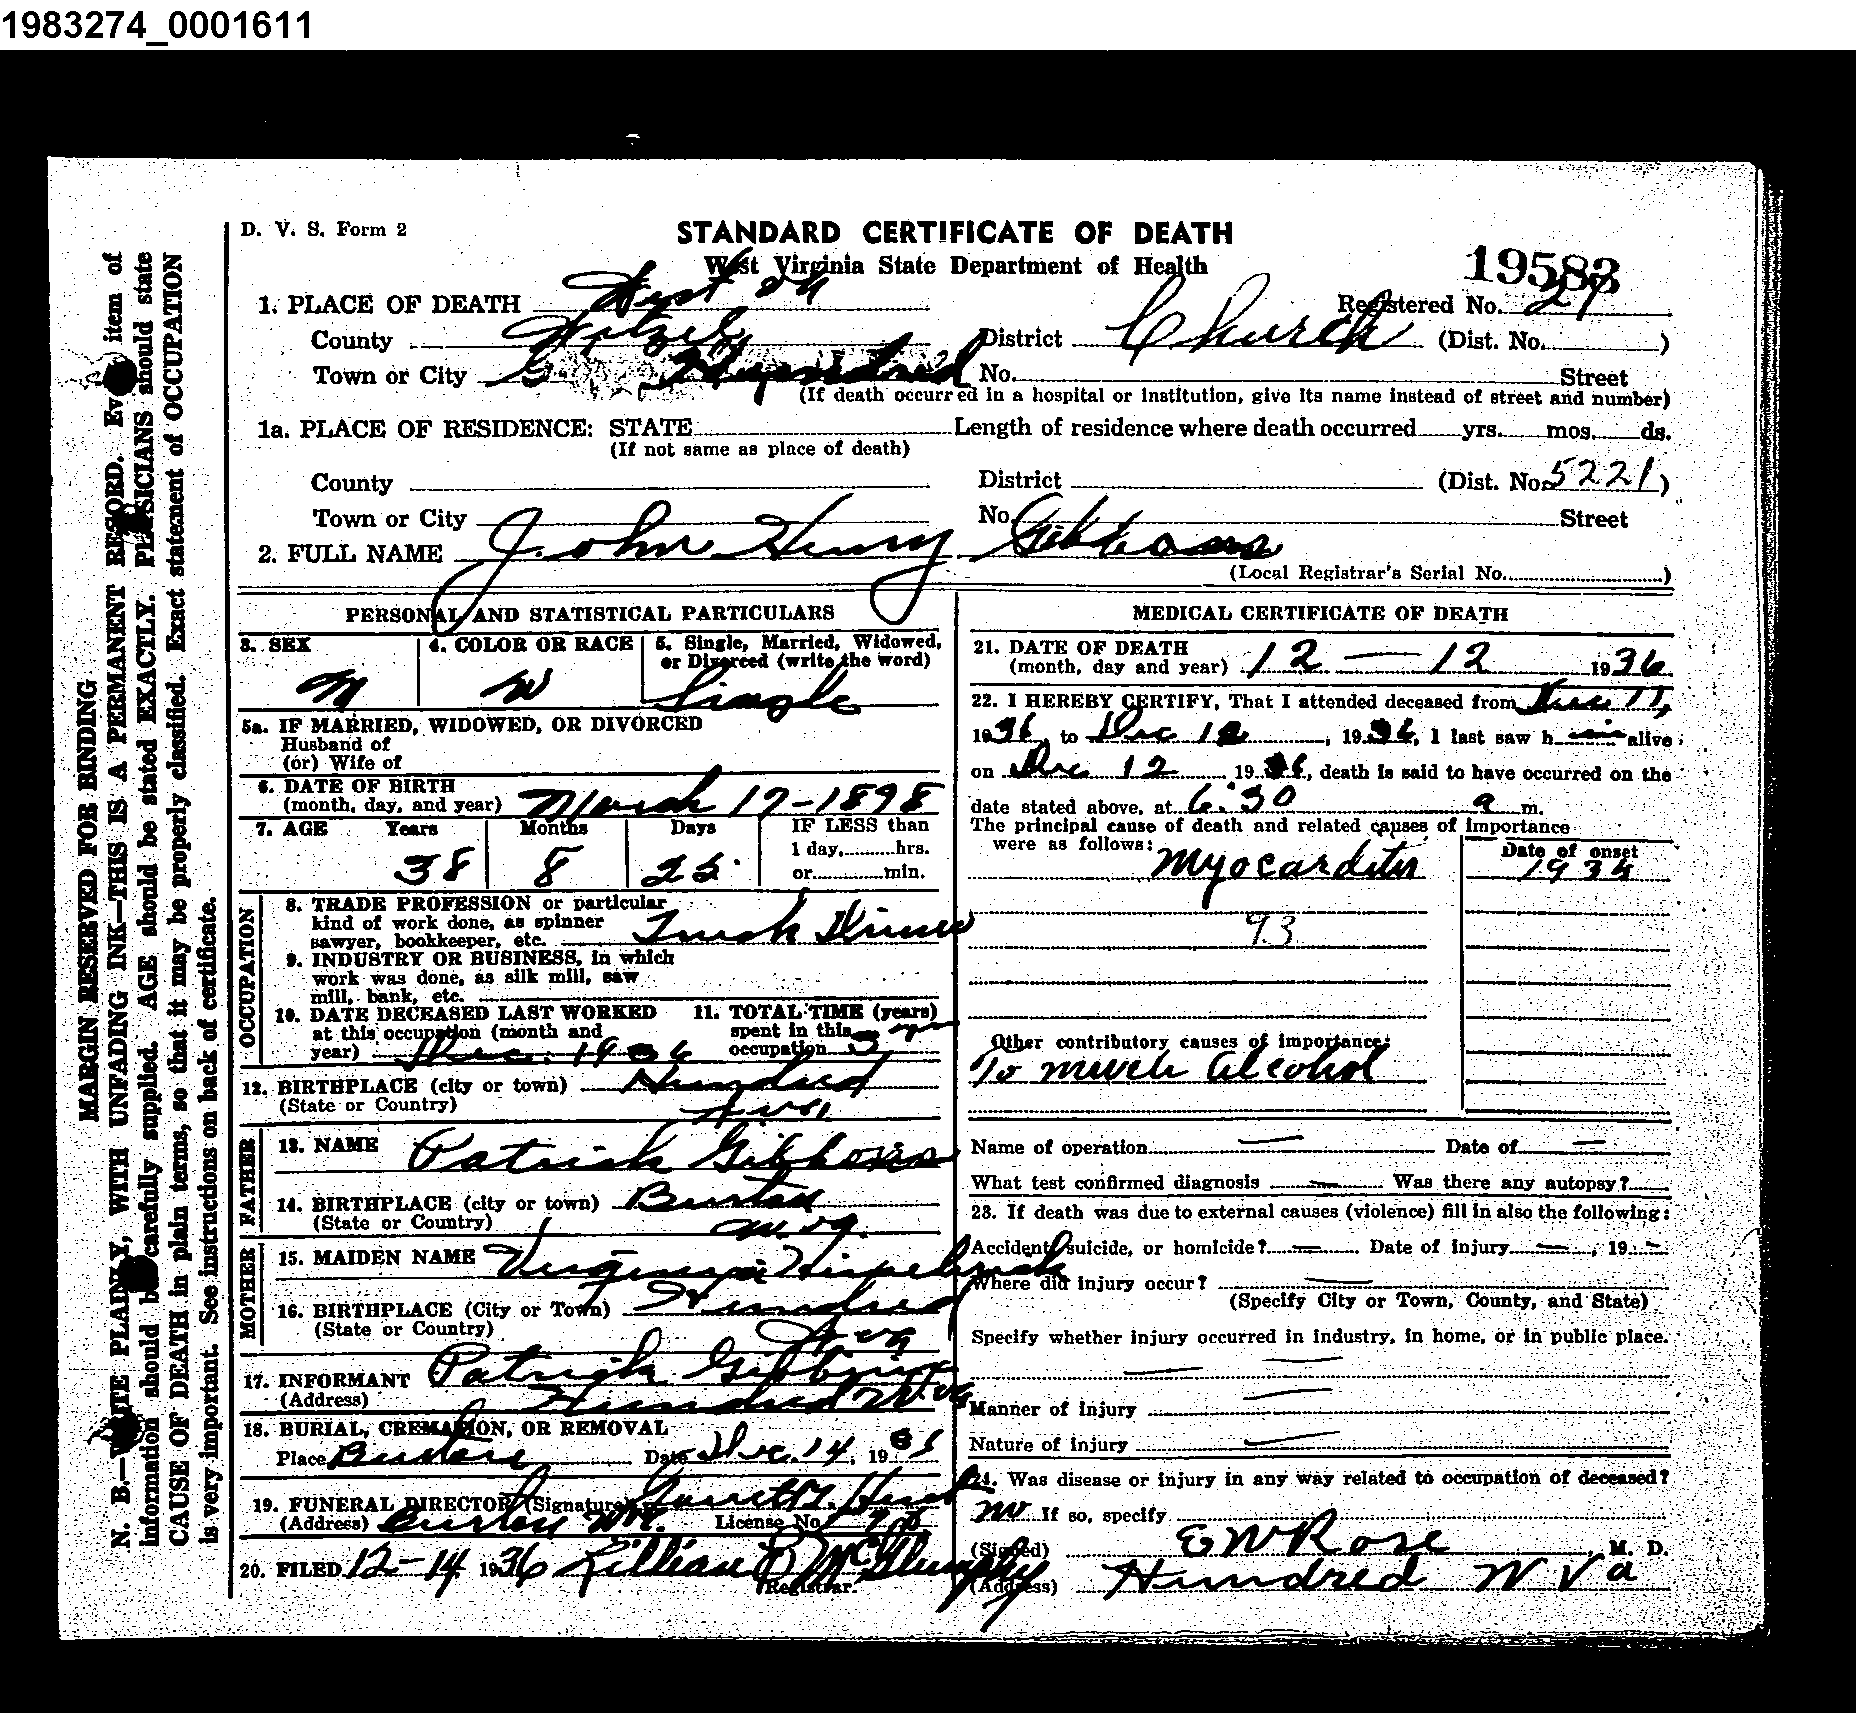 1983274_0001611
D. V. S. Form 2
STANDARD CERTIFICATE OF DEATH
West Virginia State Department of Health
19583
1. PLACE OF DEATH
Registered No. 27
County Wetzel District Church (Dist. No. )
Town or City Hundred No. Street
(If death occurred in a hospital or institution, give its name instead of street and number)
1a. PLACE OF RESIDENCE: STATE Length of residence where death occurred yrs. mos. ds.
(If not same as place of death)
County District (Dist. No. 5221)
Town or City No. Street
2. FULL NAME John Henry Gibbons
(Local Registrar's Serial No. )
PERSONAL AND STATISTICAL PARTICULARS
3. SEX
M
4. COLOR OR RACE
W
5. Single, Married, Widowed,
or Divorced (write the word)
Single
5a. IF MARRIED, WIDOWED, OR DIVORCED
Husband of
(or) Wife of
6. DATE OF BIRTH
(month, day, and year) March 17-1898
7. AGE Years Months Days IF LESS than
1 day, hrs.
or min.
38 8 25
OCCUPATION
8. TRADE PROFESSION or particular
kind of work done, as spinner
sawyer, bookkeeper, etc. Truck Driver
9. INDUSTRY OR BUSINESS, in which
work was done, as silk mill, saw
mill, bank, etc.
10. DATE DECEASED LAST WORKED
at this occupation (month and
year) Dec. 1936
11. TOTAL TIME (years)
spent in this
occupation 3 yrs
12. BIRTHPLACE (city or town) Hundred
(State or Country) W. Va.
FATHER
13. NAME Patrick Gibbons
14. BIRTHPLACE (city or town) Burton
(State or Country) W. Va.
MOTHER
15. MAIDEN NAME Virginia
16. BIRTHPLACE (City or Town) Hundred
(State or Country) W. Va
17. INFORMANT Patrick Gibbons
(Address) Hundred W. Va
18. BURIAL, CREMATION, OR REMOVAL
Place Burton Date Dec. 14, 1936
19. FUNERAL DIRECTOR (Signature)
(Address) Burton W. Va. License No.
20. FILED 12-14 1936 Lillian B McGlumphy
Registrar.
MEDICAL CERTIFICATE OF DEATH
21. DATE OF DEATH
(month, day and year) 12 — 12 1936
22. I HEREBY CERTIFY, That I attended deceased from Dec 11,
1936, to Dec 12, 1936, I last saw him alive
on Dec 12 1936, death is said to have occurred on the
date stated above, at 6:30 a m.
The principal cause of death and related causes of importance
were as follows:
Date of onset
Myocarditis 1934
93
Other contributory causes of importance:
To much Alcohol
Name of operation — Date of —
What test confirmed diagnosis — Was there any autopsy?
23. If death was due to external causes (violence) fill in also the following:
Accident, suicide, or homicide? — Date of injury —, 19 -
Where did injury occur? —
(Specify City or Town, County, and State)
Specify whether injury occurred in industry, in home, or in public place.
— —
Manner of injury —
Nature of injury —
24. Was disease or injury in any way related to occupation of deceased?
no If so, specify
(Signed) E W Rose, M. D.
(Address) Hundred W Va
MARGIN RESERVED FOR BINDING
N. B.—WRITE PLAINLY, WITH UNFADING INK—THIS IS A PERMANENT RECORD. Every item of
information should be carefully supplied. AGE should be stated EXACTLY. PHYSICIANS should state
CAUSE OF DEATH in plain terms, so that it may be properly classified. Exact statement of OCCUPATION
is very important. See instructions on back of certificate.